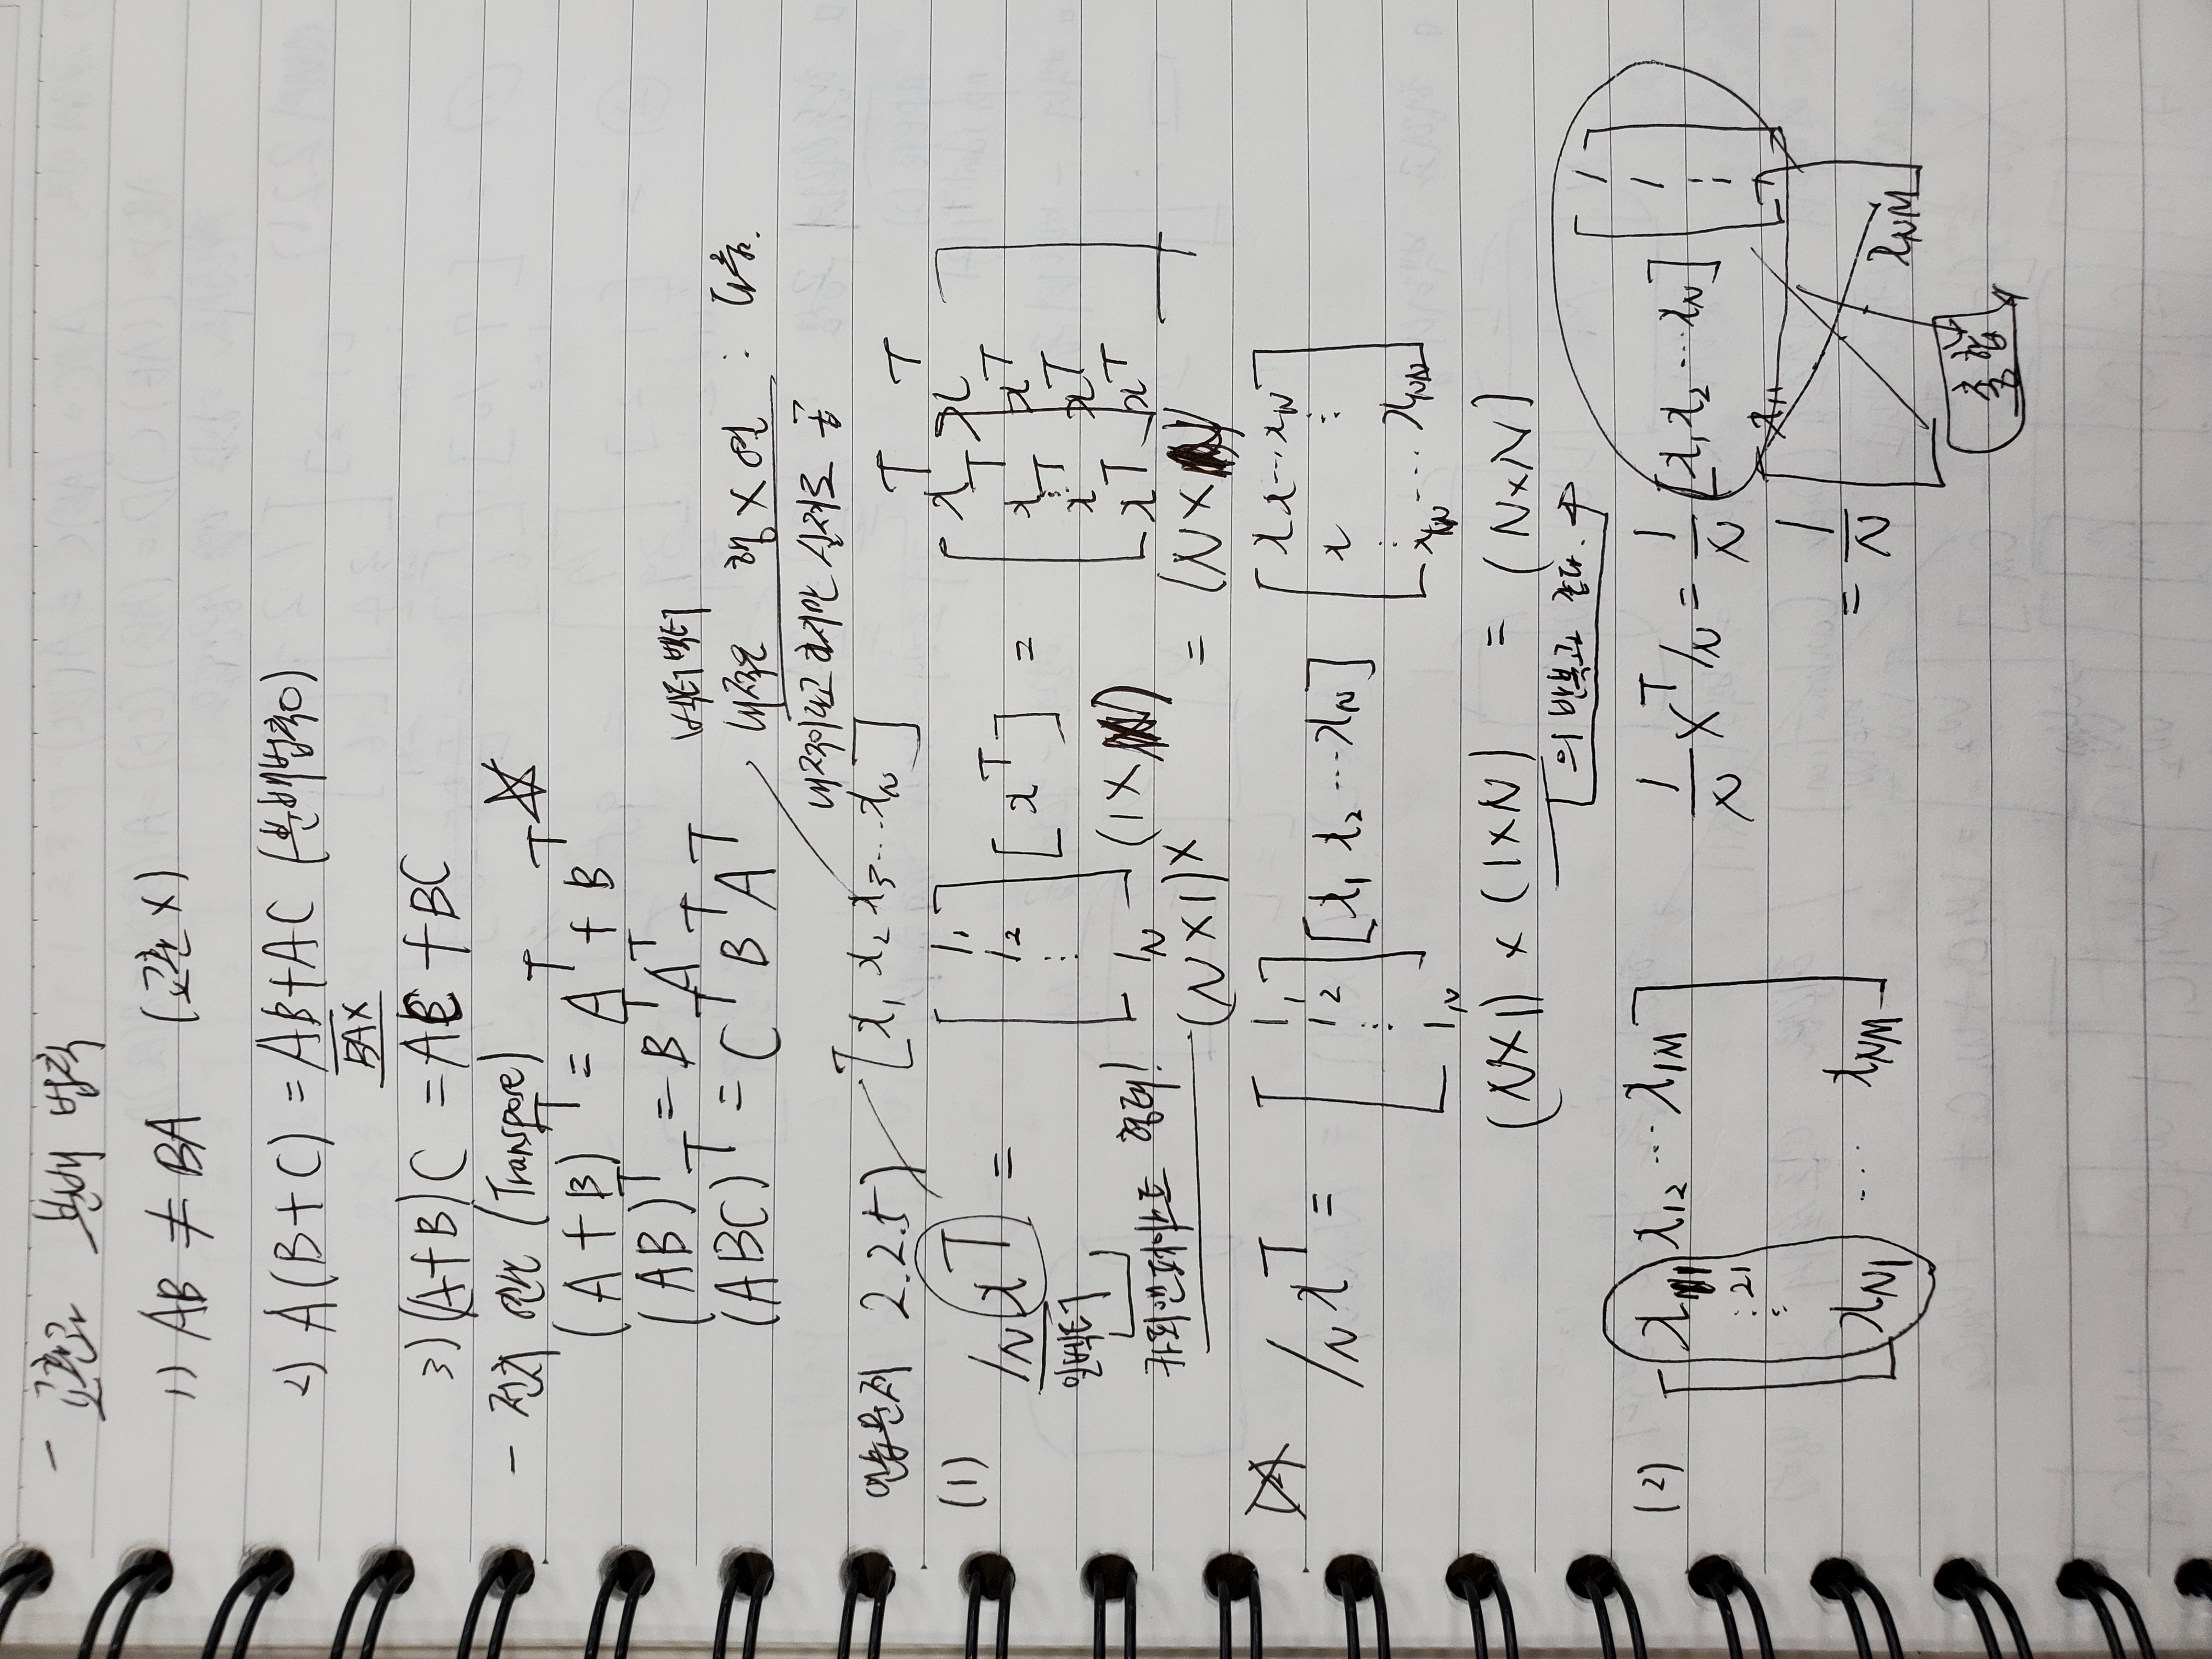 - 교환과 분배 법칙
1) AB ≠ BA (교환 X)
2) A(B+C) = AB+AC (분배법칙O)
BA X
3) (A+B)C = AC + BC
- 전치 연산 (Transpose) ☆
(A+B)^T = A^T + B^T
(AB)^T = B^T A^T
(ABC)^T = C^T B^T A^T
벡터벡터
내적은 행 X 열 : 다음.
내적이라고 하지만 실제로 곱
연습문제 2.2.5) [x₁ x₂ x₃ … x_N]
(1) 1_N x^T = [1₁ 1₂ ⋮ 1_N] [x^T] = [x^T x^T x^T x^T x^T x^T x^T x^T]
일벡터
카피앤페이스트 형태!
(N×1) × (1× ) = (N× )
(2) 1_N x^T = [1₁ 1₂ ⋮ 1_N] [x₁ x₂ … x_N] [x x … x_N x ⋮ ⋮ x_N … x_NN]
(N×1) × (1×N) = (N×N)
의 반복과 같다.
(2) [x₁₁ x₁₂ … x_1M ⋮ 21 ⋮ x_N1 … x_NM]
1/N X^T 1_N = 1/N [x₁ x₂ … x_N] [1 1 ⋮ 1]
= 1/N [x₁₁ x_NM]
총합